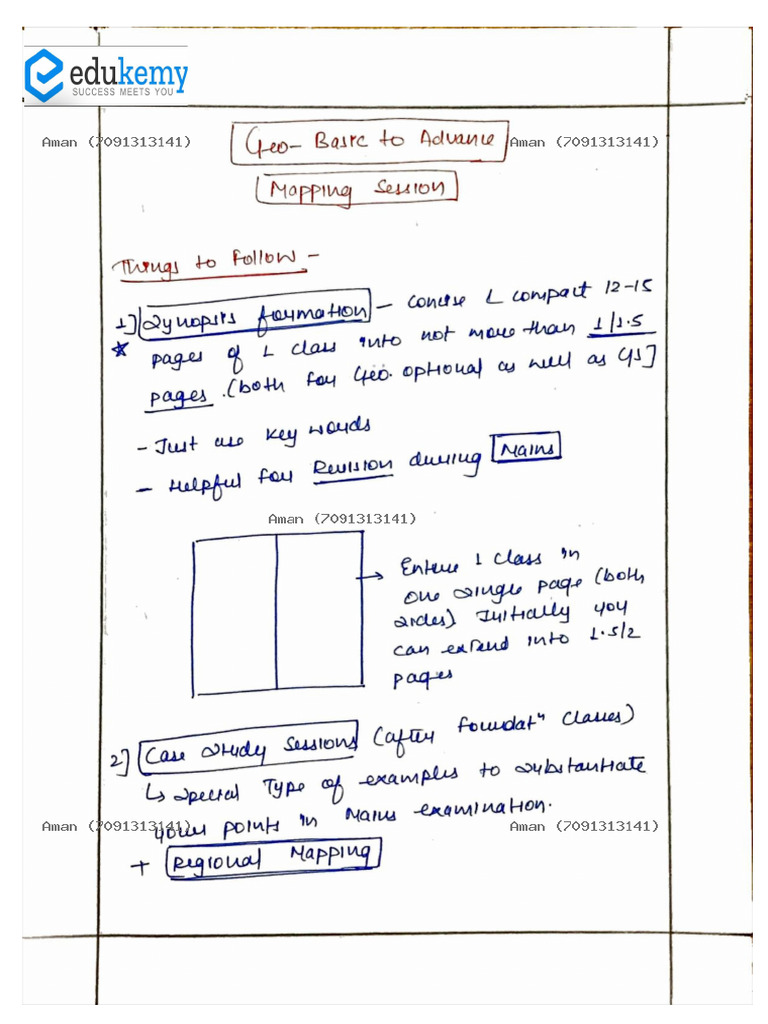 edukemy
SUCCESS MEETS YOU
Aman (7091313141)
Geo- Basic to Advance
Aman (7091313141)
Mapping Session
Things to Follow -
1] Synopsis formation - Concise & compact 12-15
* pages of 1 class into not more than 1/1.5
pages. (both for Geo. optional as well as GS]
- Just use key words
- Helpful for Revision during Mains
Aman (7091313141)
→ Entire 1 class in
one single page (both
sides) Initially you
can extend into 1.5/2
pages
2] Case study Sessions (after foundatⁿ classes)
↳ special Type of examples to substantiate
your points in Mains examination.
Aman (7091313141)
Aman (7091313141)
+ Regional Mapping